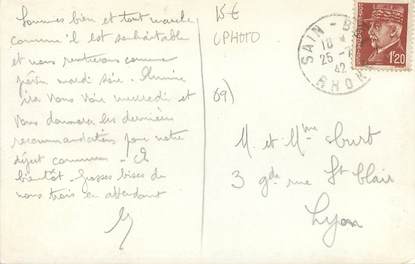 Sommes bien et tout marche
comme il est souhaitable
et nous rentrerons comme
prévu mardi soir.
ira vous voir mercredi et
vous donnera les dernières
recommandations pour notre
départ commun - A
bientôt - Grosses bises de
nous trois en attendant
15€
CPHOTO
69)
SAIN - B
18
25 -
42
RHONE
1f20
M. et Mme
3 gde rue St Clair
Lyon